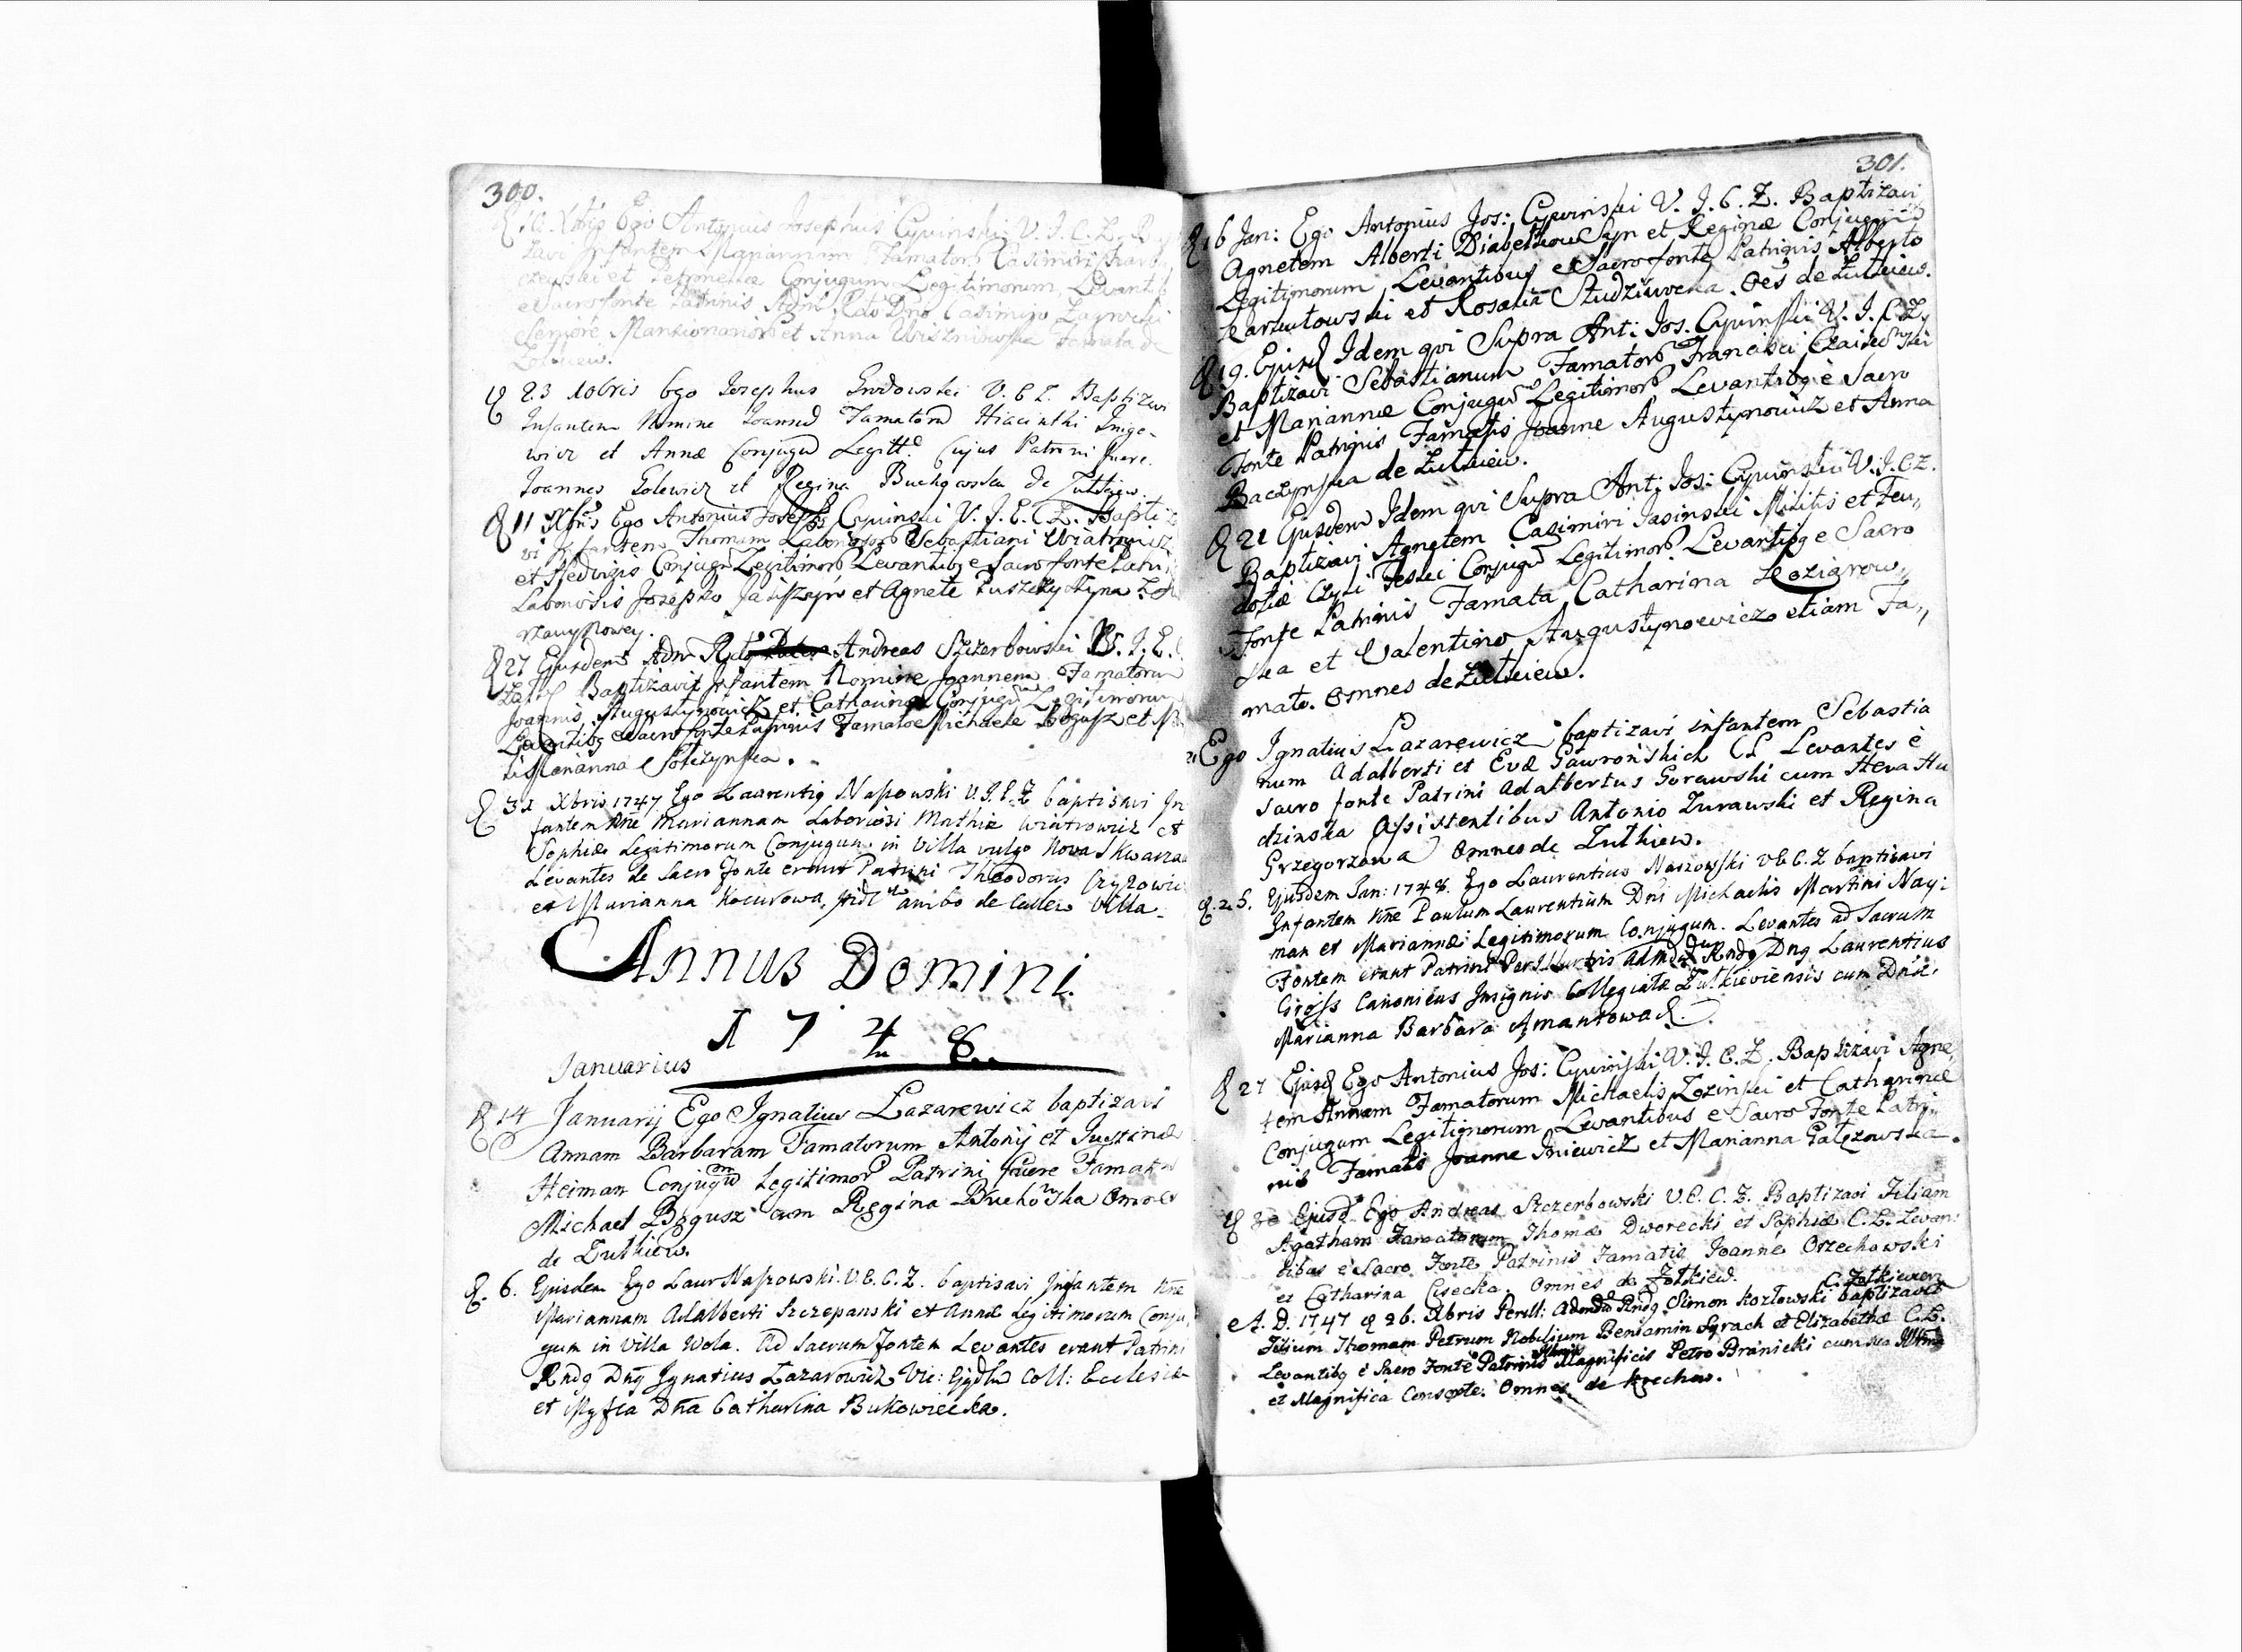 300.
10. Xbris Ego Antonius Josephus Cypinski V. J. C. Z.
zavi Infantem Mariannam Famator Casimiri
et Petronellæ Conjugum Legitimorum, Levant
e Sacro fonte Patrinis Adm Rdo Dno Casimiro
Seniore Mansionarior et Anna Wiszniowska Famata de
Zolkiew.
23 10bris Ego Josephus V. C Z. Baptizavi
Infantem Nomine Joannem Famatorum Hiacinthi Snige-
wicz et Annæ Conjugum Legitt. Cujus Patrini fuere.
Joannes Golewicz et Regina Buchowska de Zulkiew.
11 Xbris Ego Antonius Joseph Cypinski V. J. E. C Z. Bapti
vi Infantem Thomam Laborioso Sebastiani Wiatrowicz
et Hedvigis Conjugu Legitimor Levantibg e Sacro fonte Patri
Laboriosis Josepho et Agnete
27 Ejusdem Adm Rdg Andreas Szczerbowski V. J. E.
Baptizavit Infantem Nomine Joannem Famatorum
Joannis Augustynowicz et Catharinæ Conjugu Legitimorum
Levantibg e Sacro fonte Patrinis Famato Michaele Bogusz et
Marianna
31 Xbris 1747 Ego Laurentig Naszowski V. J. C. Z baptisavi In
fantem Nne Mariannam Laboriosi Mathiæ Wiatrowicz et
Sophiæ Legitimorum Conjugum in Villa vulgo Nova Skwarza
Levantes de Sacro Fonte erant Patrini Theodorus Czyzowicz
et Marianna Kocurowa, ambo de eadem Villa.
Annus Domini
1748.
Januarius
14 Januarij Ego Ignatius Lazarewicz baptizavi
Annam Barbaram Famatorum Antonij et Justinæ
Heiman Conjugu Legitimor Patrini fuere Famatus
Michael Bogusz cum Regina Buchowska Omnes
de Zulkiew.
6. Ejusdem Ego Laur Naszowski V. C. C. Z. baptisavi Infantem Nne
Mariannam Adalberti Szczepanski et Annæ Legitimorum Conju
gum in Villa Wola. Ad Sacrum fontem Levantes erant Patrini
Rndg Dng Ignatius Lazarowicz Vic: Ejusd Coll: Ecclesiæ
et Mgfca Dna Catharina Bukowiecka.
301.
16 Jan: Ego Antonius Jos: Cypinski V. J. C. Z. Baptizavi
Agnetem Alberti et Reginæ Conjugum
Legitimorum, Levantibus e Sacro fonte Patrinis Alberto
et Rosalia Studziwska. Oes de Zulkiew.
19. Ejusd Idem qvi Supra Ant: Jos. Cypinski V. J. C Z.
Baptizavi Sebastianum Famator Francisci
et Mariannæ Conjugu Legitimor Levantibg e Sacro
Fonte Patrinis Famatis Joanne Augustynowicz et Anna
Baczynska de Zulkiew.
21 Ejusdem Idem qvi Supra Ant: Jos: Cypinski V. J. C Z.
Baptizavi Agnetem Casimiri Jasinski Militis et Teo,,
dosiæ Conjugu Legitimor Levantibg e Sacro
Fonte Patrinis Famata Catharina Koziarow,,
ska et Valentino Augustynowicz etiam Fa,,
mato. Omnes de Zulkiew.
21 Ego Ignatius Lazarewicz baptizavi infantem Sebastia
num Adalberti et Evæ Gawronskich CL Levantes è
Sacro fonte Patrini Adalbertus Gorawski cum Heva Hu
dzinska Assistentibus Antonio Zurawski et Regina
Grzegorzowa Omnes de Zulkiew.
25. Ejusdem Jan: 1748. Ego Laurentius Naszowski V C. C. Z baptisavi
Infantem Nne Paulum Laurentium Dni Michaelis Martini Nay:
man et Mariannæ Legitimorum Conjugum. Levantes ad Sacrum
Fontem erant Patrini Perillustris Admdu Rndg Dng Laurentius
Gross Canonicus Insignis Collegiatæ Zulkieviensis cum Dna
Marianna Barbara Amantowa.
27 Ejusd Ego Antonius Jos: Cypinski V. J. C. Z. Baptizavi Agne,
tem Annam Famatorum Michaelis Lozinski et Catharinæ
Conjugum Legitimorum Levantibus e Sacro Fonte Patri,,
nis Famatis Joanne Iniewicz et Marianna Galęzowska.
30 Ejusd Ego Andreas Szczerbowski V. C. C. Z. Baptizavi Filiam
Agatham Famatorum Thomæ Dworecki et Sophiæ C. L. Levan:
tibus è Sacro Fonte Patrinis Famatis Joanne Orzechowski
et Catharina Cisecka. Omnes de Zolkiew.
A. D. 1747 26. Xbris Perill: Admdu Rndg Simon Kozlowski C. Zolkiewien baptizavit
Filium Thomam Petrum Nobilium Beniamin Syrach et Elizabethæ C. L.
Levantibg è Sacro Fonte Patrinis Illmis Magnificis Petro Branicki cum sua Illma
et Magnifica Consorte. Omnes de Krechow.